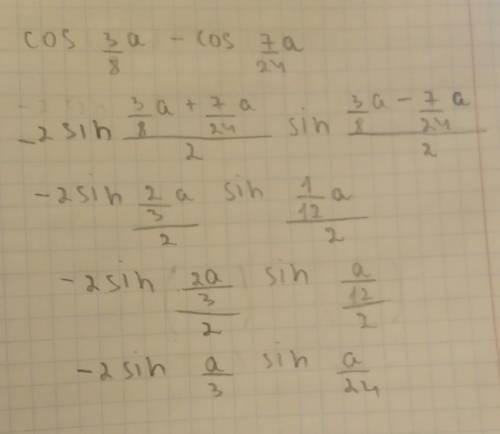 cos 3/8 a - cos 7/24 a
-2 sin (3/8 a + 7/24 a)/2 sin (3/8 a - 7/24 a)/2
-2 sin (2/3 a)/2 sin (1/12 a)/2
-2 sin (2a/3)/2 sin (a/12)/2
-2 sin a/3 sin a/24